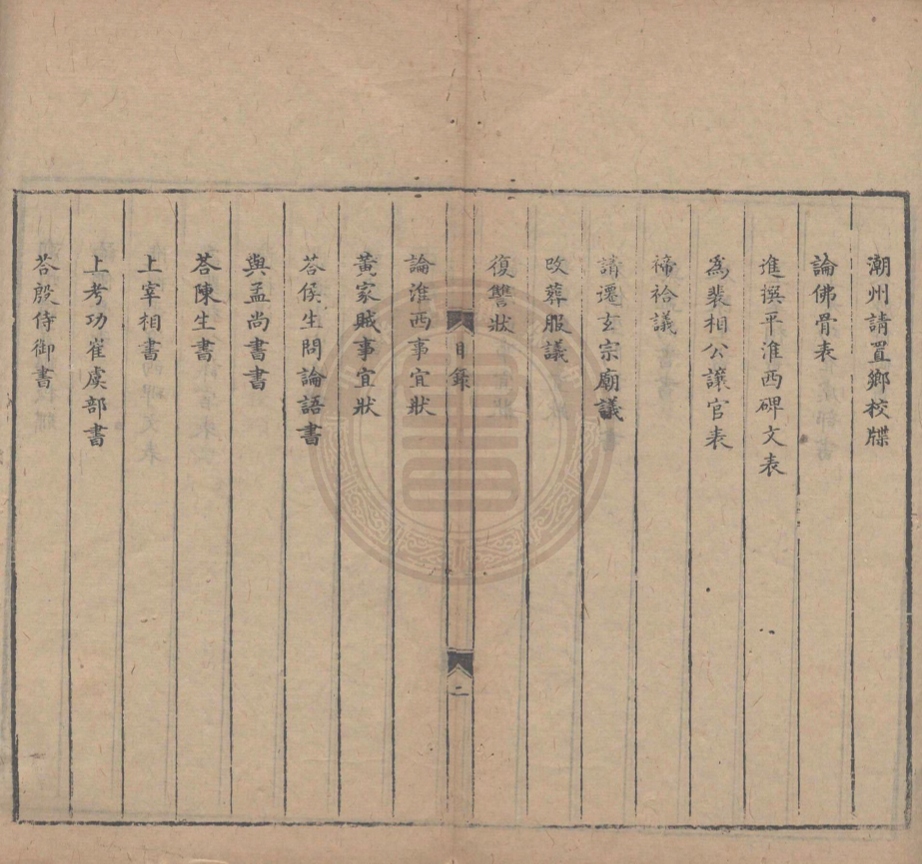 潮州請置鄉校牒
論佛骨表
進撰平淮西碑文表
為裴相公讓官表
禘祫議
請遷玄宗廟議
改葬服議
復讐狀
目錄
二
論淮西事宜狀
黃家賊事宜狀
荅侯生問論語書
與孟尚書書
荅陳生書
上宰相書
上考功崔虞部書
荅殷侍御書